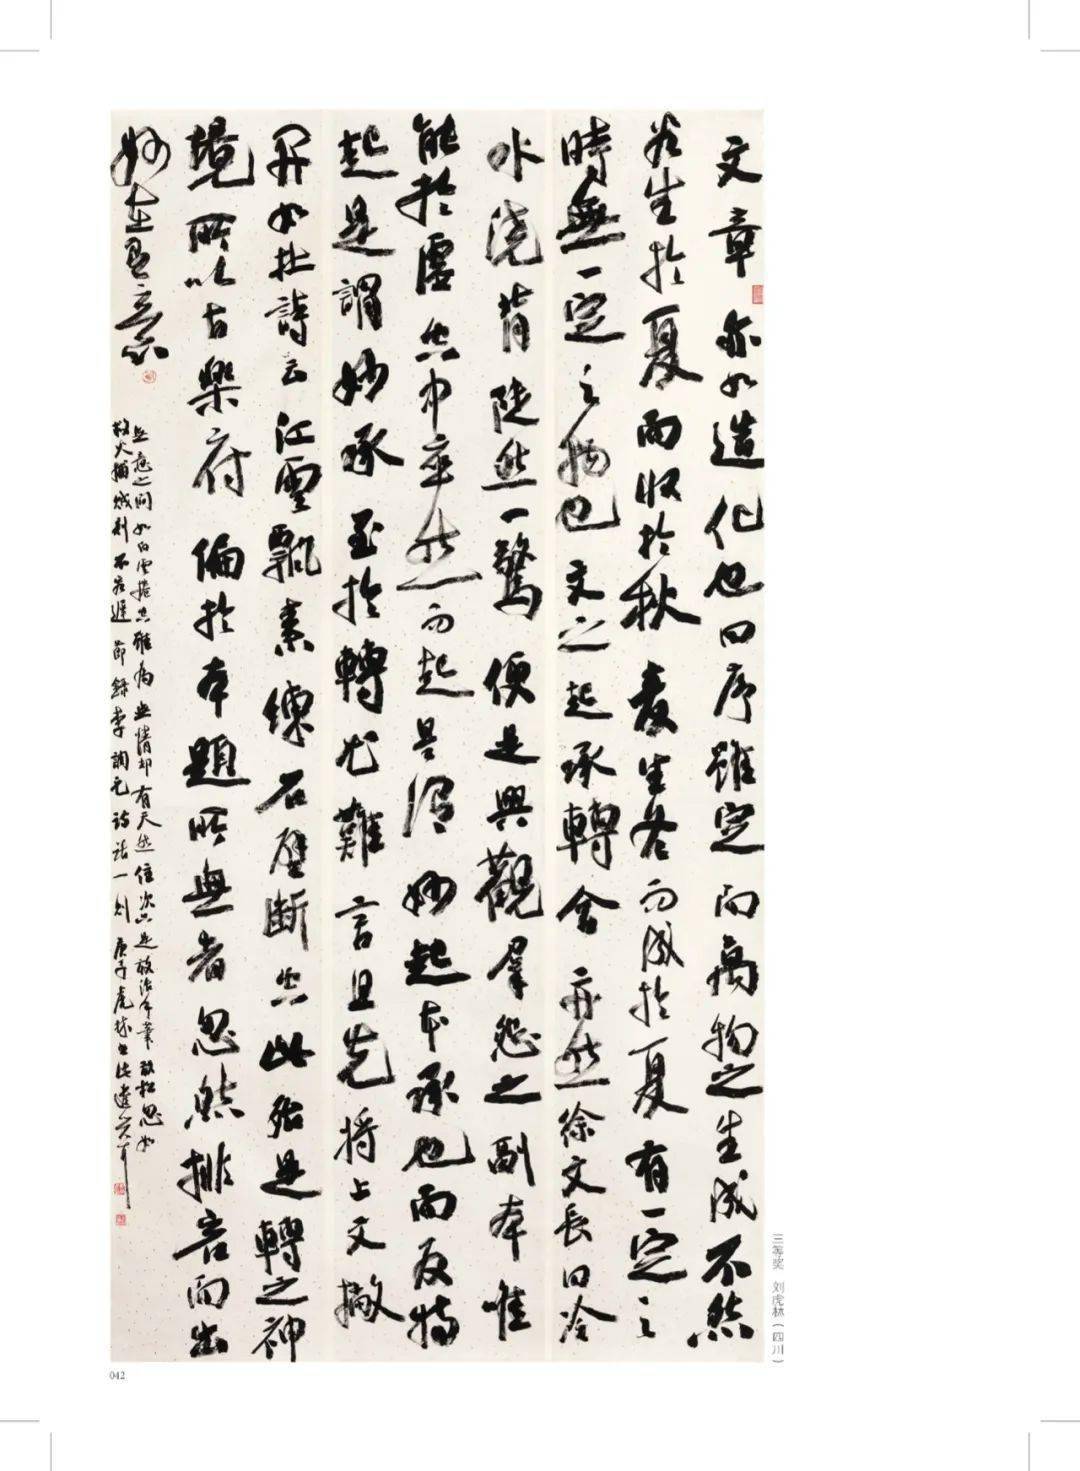 文章亦如造化也四序虽定而万物之生成不然
谷生於夏而收於秋麦生冬而成於夏有一定之
時無一定之物也文之起承轉合亦然徐文長曰冷
水浇背陡然一驚便是興觀羣怨之副本惟
能於虚空中卒然而起是謂妙起本承也而反特
起是謂妙承至於轉尤難言且先將上文撇
開如杜詩云江雲飄素練石壁断空此殆是轉之神
境所以古樂府偏於本題所無者忽然排宕而出
妙在無意
無意之間如白雲捲空雖為無情却有天然位次
救火捕賊刻不容遲節錄李調元詩話一則庚子虎林
三等奖 刘虎林（四川）
042